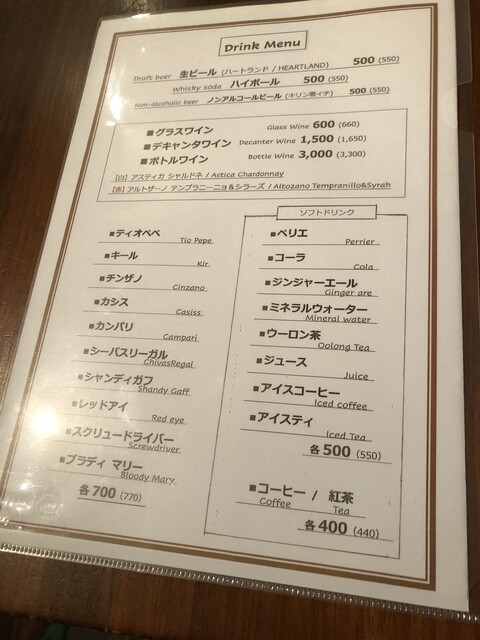 Drink Menu
Draft beer 生ビール (ハートランド / HEARTLAND) 500 (550)
Whisky soda ハイボール 500 (550)
Non-alcoholic beer ノンアルコールビール (キリン零イチ) 500 (550)
■グラスワイン Glass Wine 600 (660)
■デキャンタワイン Decanter Wine 1,500 (1,650)
■ボトルワイン Bottle Wine 3,000 (3,300)
【白】アスティカ シャルドネ / Astica Chardonnay
【赤】アルトザーノ テンプラニーニョ＆シラーズ / Altozano Tempranillo&Syrah
■ティオペペ
Tio Pepe
■キール
Kir
■チンザノ
Cinzano
■カシス
Casiss
■カンパリ
Campari
■シーバスリーガル
ChivasRegal
■シャンディガフ
Shandy Gaff
■レッドアイ
Red eye
■スクリュードライバー
Screwdriver
■ブラディ マリー
Bloody Mary
各700 (770)
ソフトドリンク
■ペリエ
Perrier
■コーラ
Cola
■ジンジャーエール
Ginger are
■ミネラルウォーター
Mineral water
■ウーロン茶
Oolong Tea
■ジュース
Juice
■アイスコーヒー
Iced coffee
■アイスティ
Iced Tea
各500 (550)
■コーヒー / 紅茶
Coffee Tea
各400 (440)